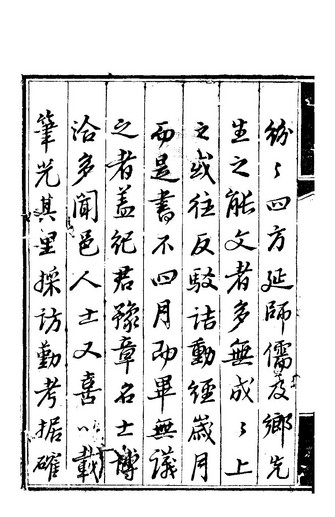 紛〻四方延師儒及鄉先
生之能文者多無成〻上
之或往反駁詰動經歲月
而是書不四月而畢無議
之者蓋紀君豫章名士博
洽多聞邑人士又喜以載
筆光其里採訪勤考据確